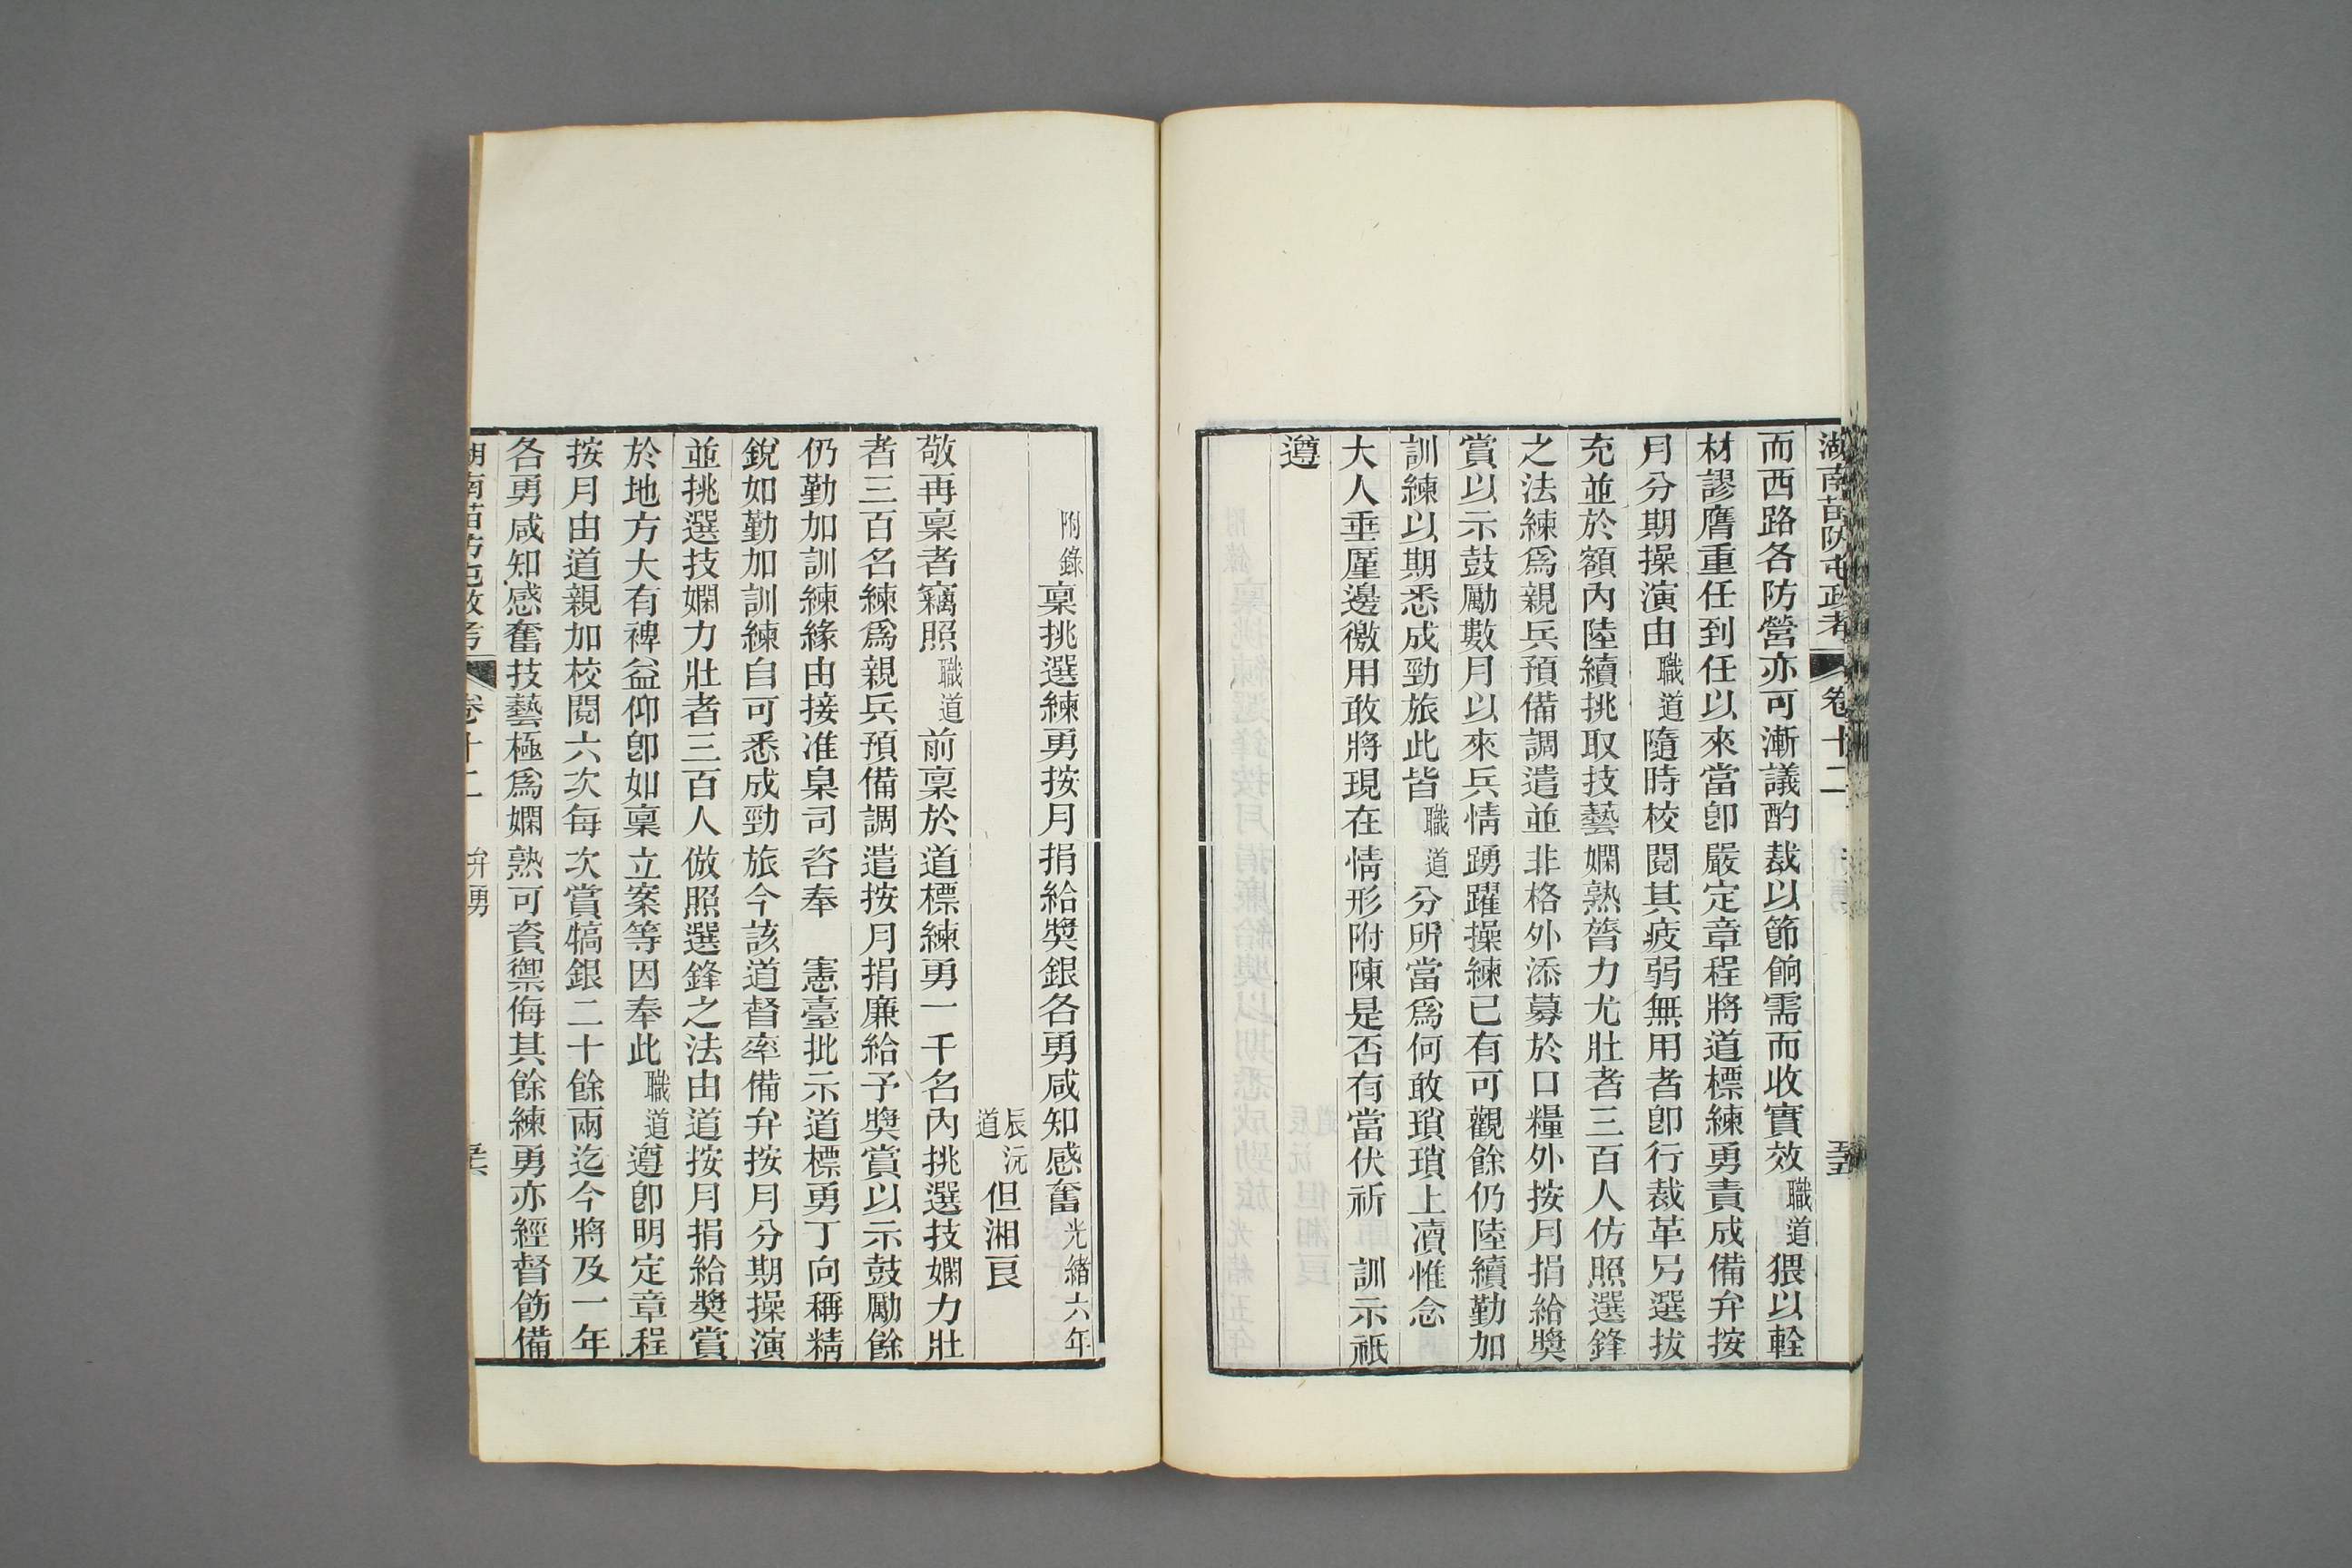 湖南苗防屯政考 卷十二 弁勇 五十五
而西路各防營亦可漸議酌裁以節餉需而收實效職道猥以輇
材謬膺重任到任以來當卽嚴定章程將道標練勇責成備弁按
月分期操演由職道隨時校閱其疲弱無用者卽行裁革另選拔
充並於額內陸續挑取技藝嫻熟膂力尤壯者三百人仿照選鋒
之法練爲親兵預備調遣並非格外添募於口糧外按月捐給獎
賞以示鼓勵數月以來兵情踴躍操練已有可觀餘仍陸續勤加
訓練以期悉成勁旅此皆職道分所當爲何敢瑣瑣上凟惟念
大人垂厪邊徼用敢將現在情形附陳是否有當伏祈 訓示祗
遵
附錄稟挑選練勇按月捐給獎銀各勇咸知感奮光緒六年
辰沅道但湘良
敬再稟者竊照職道前稟於道標練勇一千名內挑選技嫻力壯
者三百名練爲親兵預備調遣按月捐廉給予獎賞以示鼓勵餘
仍勤加訓練緣由接准臬司咨奉 憲臺批示道標勇丁向稱精
銳如勤加訓練自可悉成勁旅今該道督率備弁按月分期操演
並挑選技嫻力壯者三百人倣照選鋒之法由道按月捐給獎賞
於地方大有裨益仰卽如稟立案等因奉此職道遵卽明定章程
按月由道親加校閱六次每次賞犒銀二十餘兩迄今將及一年
各勇咸知感奮技藝極爲嫻熟可資禦侮其餘練勇亦經督飭備
湖南苗防屯政考 卷十二 弁勇 五十六